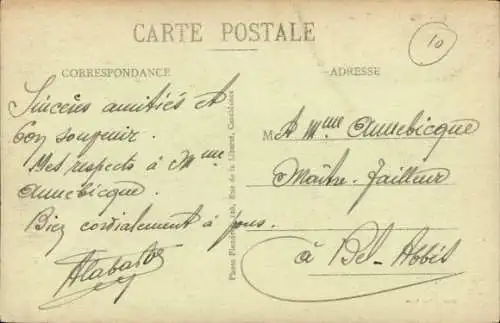 CARTE POSTALE
10
CORRESPONDANCE
Sincères amitiés et
bon souvenir.
Mes respects à Mme
Annebicque.
Bien cordialement à vous.
Photo Rue de la Liberté, Casablanca
ADRESSE
M
A Mme Annebicque
Maître-Tailleur
à Bel-Abbès